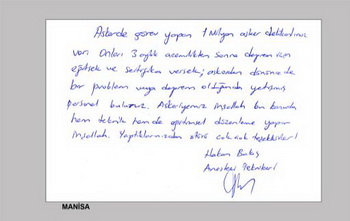 Askerde görev yapan 1 Milyon asker
var. Onları 3 aylık acemilikten sonra deprem için
eğitsek ve sertifika versek; askerden dönünce de
bir problem veya deprem olduğunda yetişmiş
personel buluruz. Askeriyemiz inşallah bu konuda
hem teknik hem de eğitimsel düzenleme yapar
inşallah. Yaptıklarınızdan ötürü çok çok teşekkürler!
Hakan
Anestezi Teknikeri
MANİSA